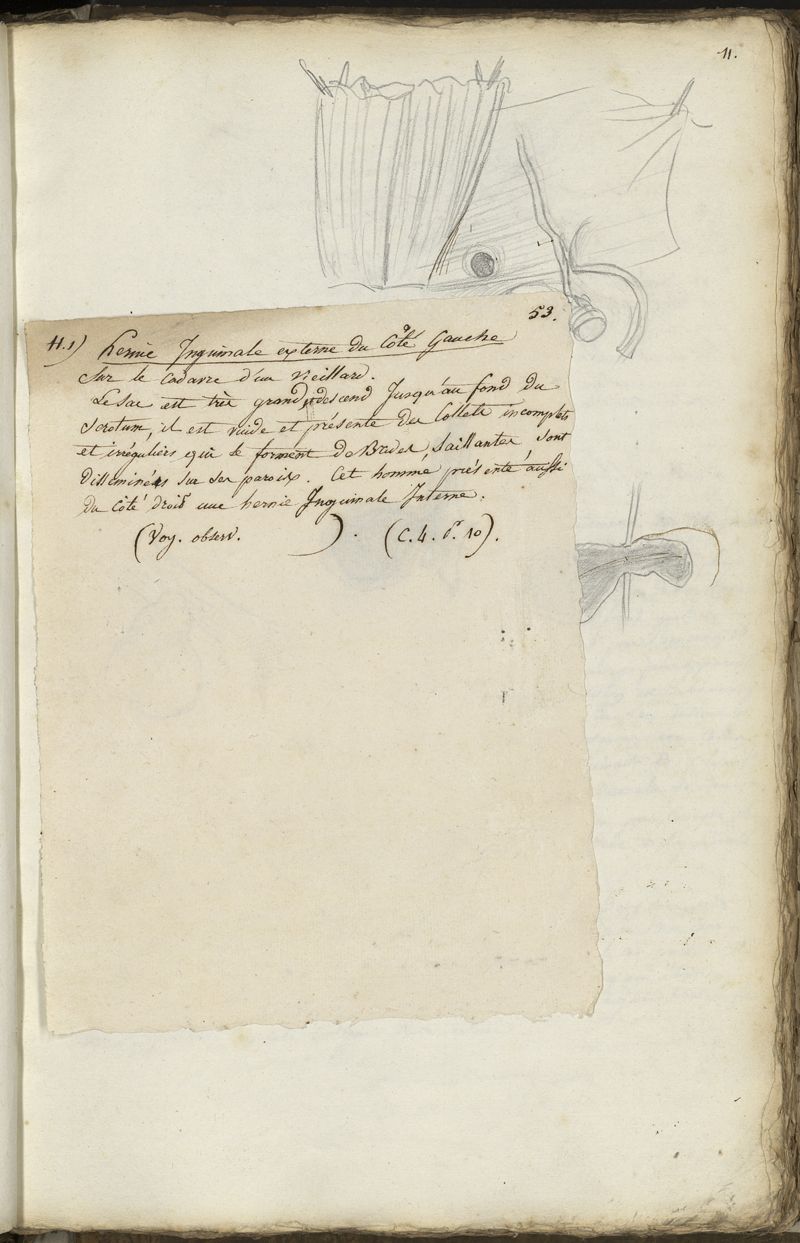 11.
53.
H.1) Hernie Inguinale externe du Côté Gauche
Sur le Cadavre d'un Vieillard.
Le Sac est très grand, descend Jusqu'au fond du
Scrotum, il est vuide et présente des Collets incomplets
et irréguliers qui se forment de Brides Saillantes sont
disseminées sur ses parois. Cet homme présente aussi
du Côté droit une hernie Inguinale Interne.
(Voy. observ. ). (C. 4. P. 10).